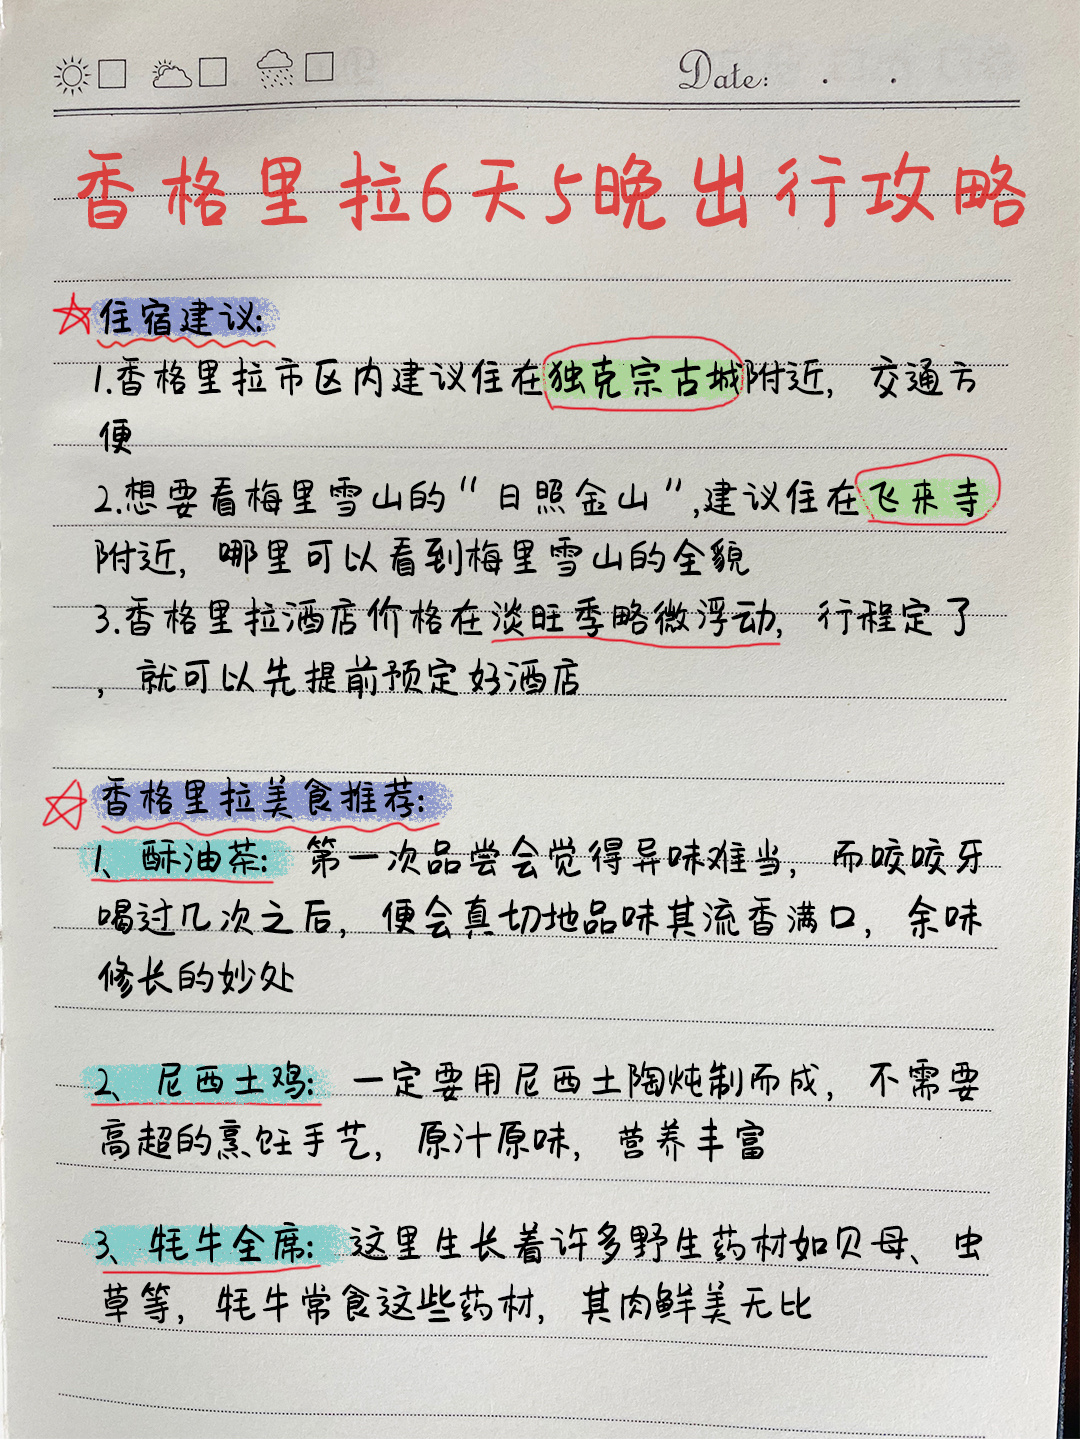 Date: . .
香格里拉6天5晚出行攻略
住宿建议:
1.香格里拉市区内建议住在独克宗古城附近, 交通方
便
2.想要看梅里雪山的“日照金山”,建议住在飞来寺
附近, 哪里可以看到梅里雪山的全貌
3.香格里拉酒店价格在淡旺季略微浮动, 行程定了
, 就可以先提前预定好酒店
香格里拉美食推荐:
1、酥油茶: 第一次品尝会觉得异味难当, 而咬咬牙
喝过几次之后, 便会真切地品味其流香满口, 余味
修长的妙处
2、尼西土鸡: 一定要用尼西土陶炖制而成, 不需要
高超的烹饪手艺, 原汁原味, 营养丰富
3、牦牛全席: 这里生长着许多野生药材如贝母、虫
草等, 牦牛常食这些药材, 其肉鲜美无比